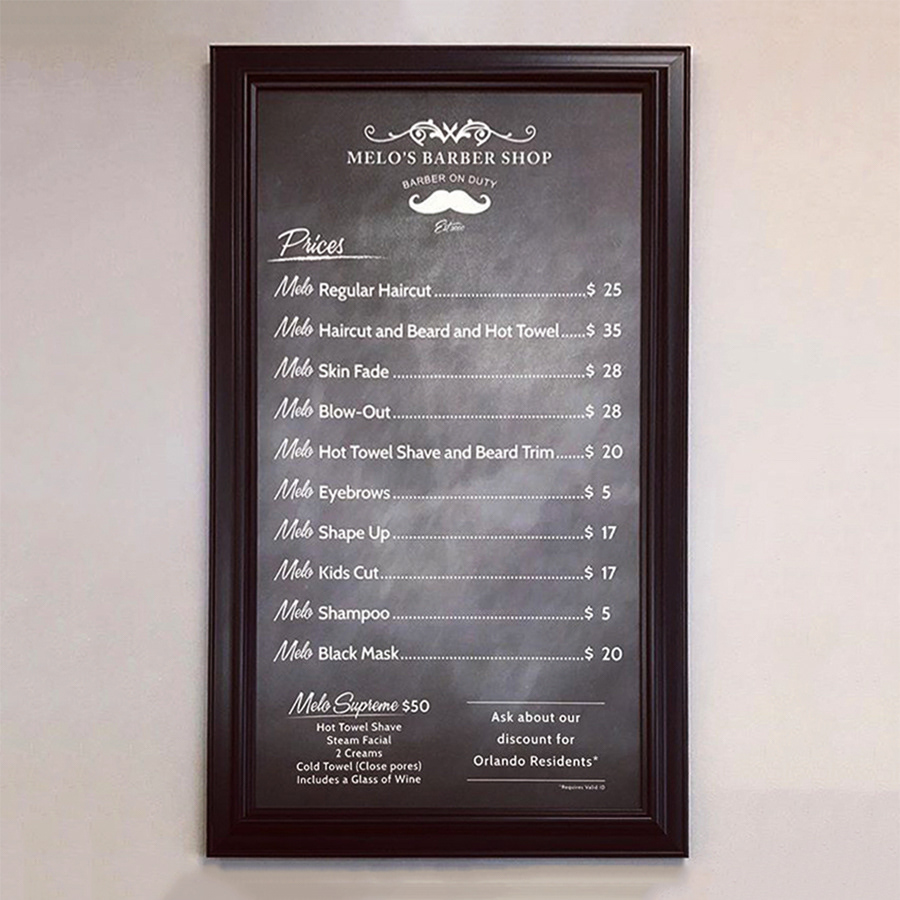 MELO'S BARBER SHOP
BARBER ON DUTY
Prices
Melo Regular Haircut..............................$ 25
Melo Haircut and Beard and Hot Towel......$ 35
Melo Skin Fade ......................................$ 28
Melo Blow-Out......................................$ 28
Melo Hot Towel Shave and Beard Trim.......$ 20
Melo Eyebrows......................................$ 5
Melo Shape Up......................................$ 17
Melo Kids Cut........................................$ 17
Melo Shampoo......................................$ 5
Melo Black Mask....................................$ 20
Melo Supreme $50
Hot Towel Shave
Steam Facial
2 Creams
Cold Towel (Close pores)
Includes a Glass of Wine
Ask about our
discount for
Orlando Residents*
*Requires Valid ID